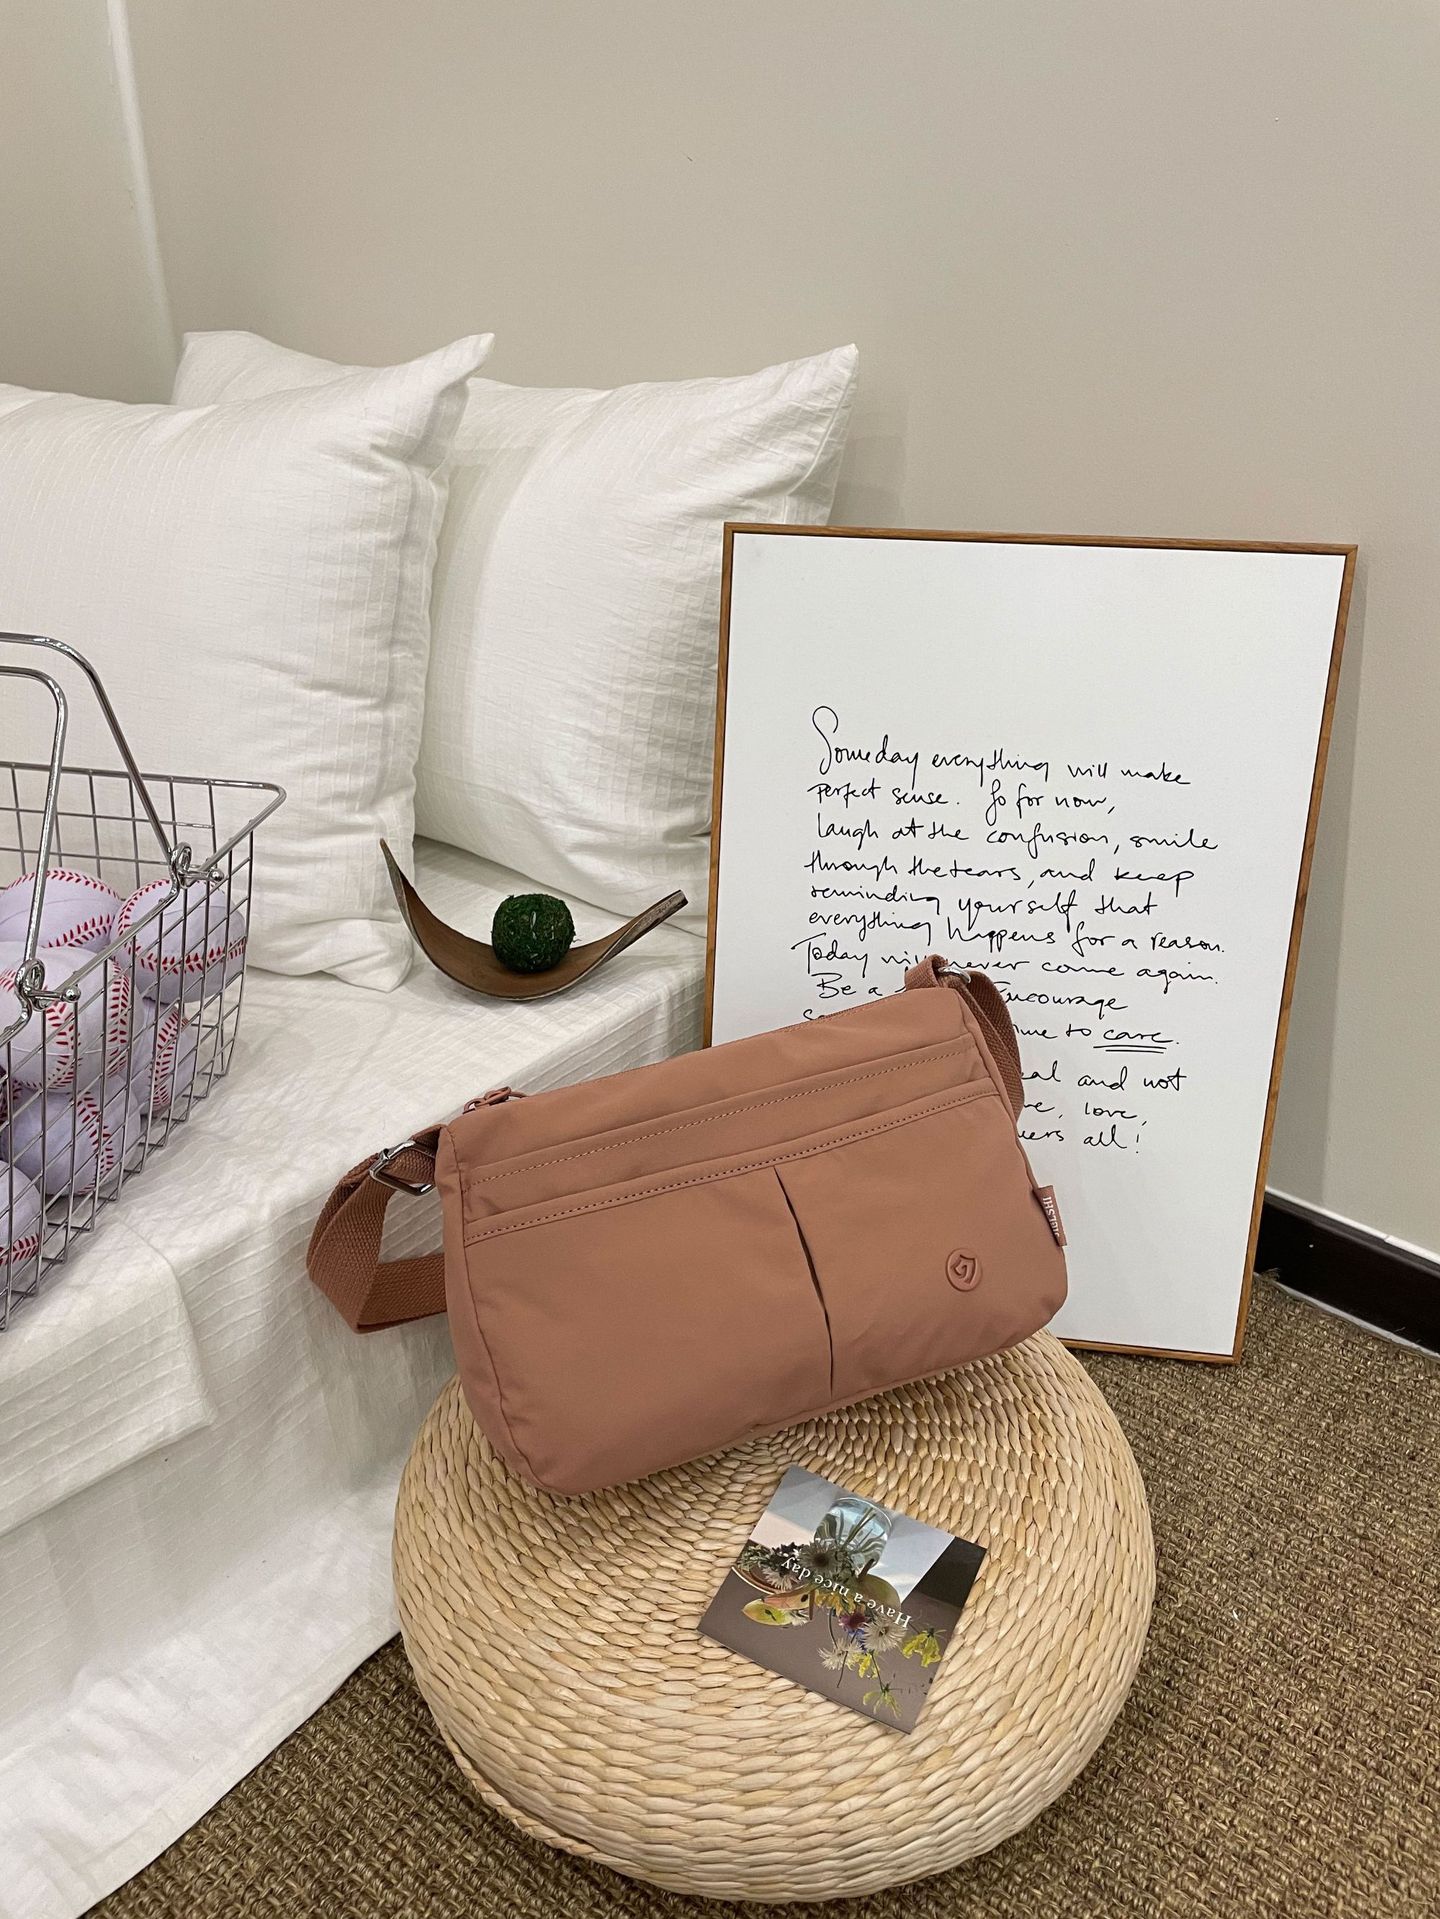 Someday everything will make
perfect sense. So for now,
laugh at the confusion, smile
through the tears, and keep
reminding yourself that
everything happens for a reason.
Today will never come again.
Be a Encourage
to care.
and not
love,
all!
Have a nice day